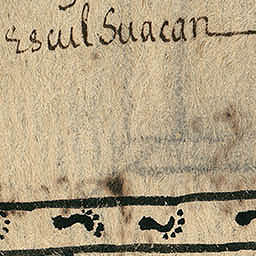 Escuil Suacan